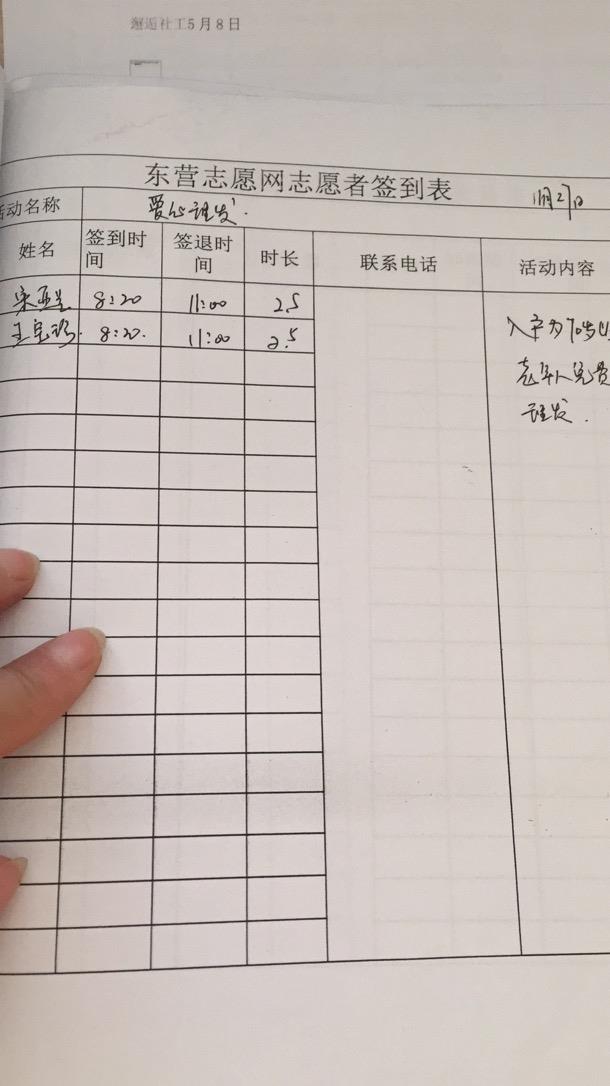 邂逅社工5月8日
东营志愿网志愿者签到表
11月27日
活动名称 爱心理发.
姓名 签到时间 签退时间 时长 联系电话 活动内容
8:20 11:00 2.5
8:20. 11:00 2.5
入户为70岁以
老年人免费
理发.